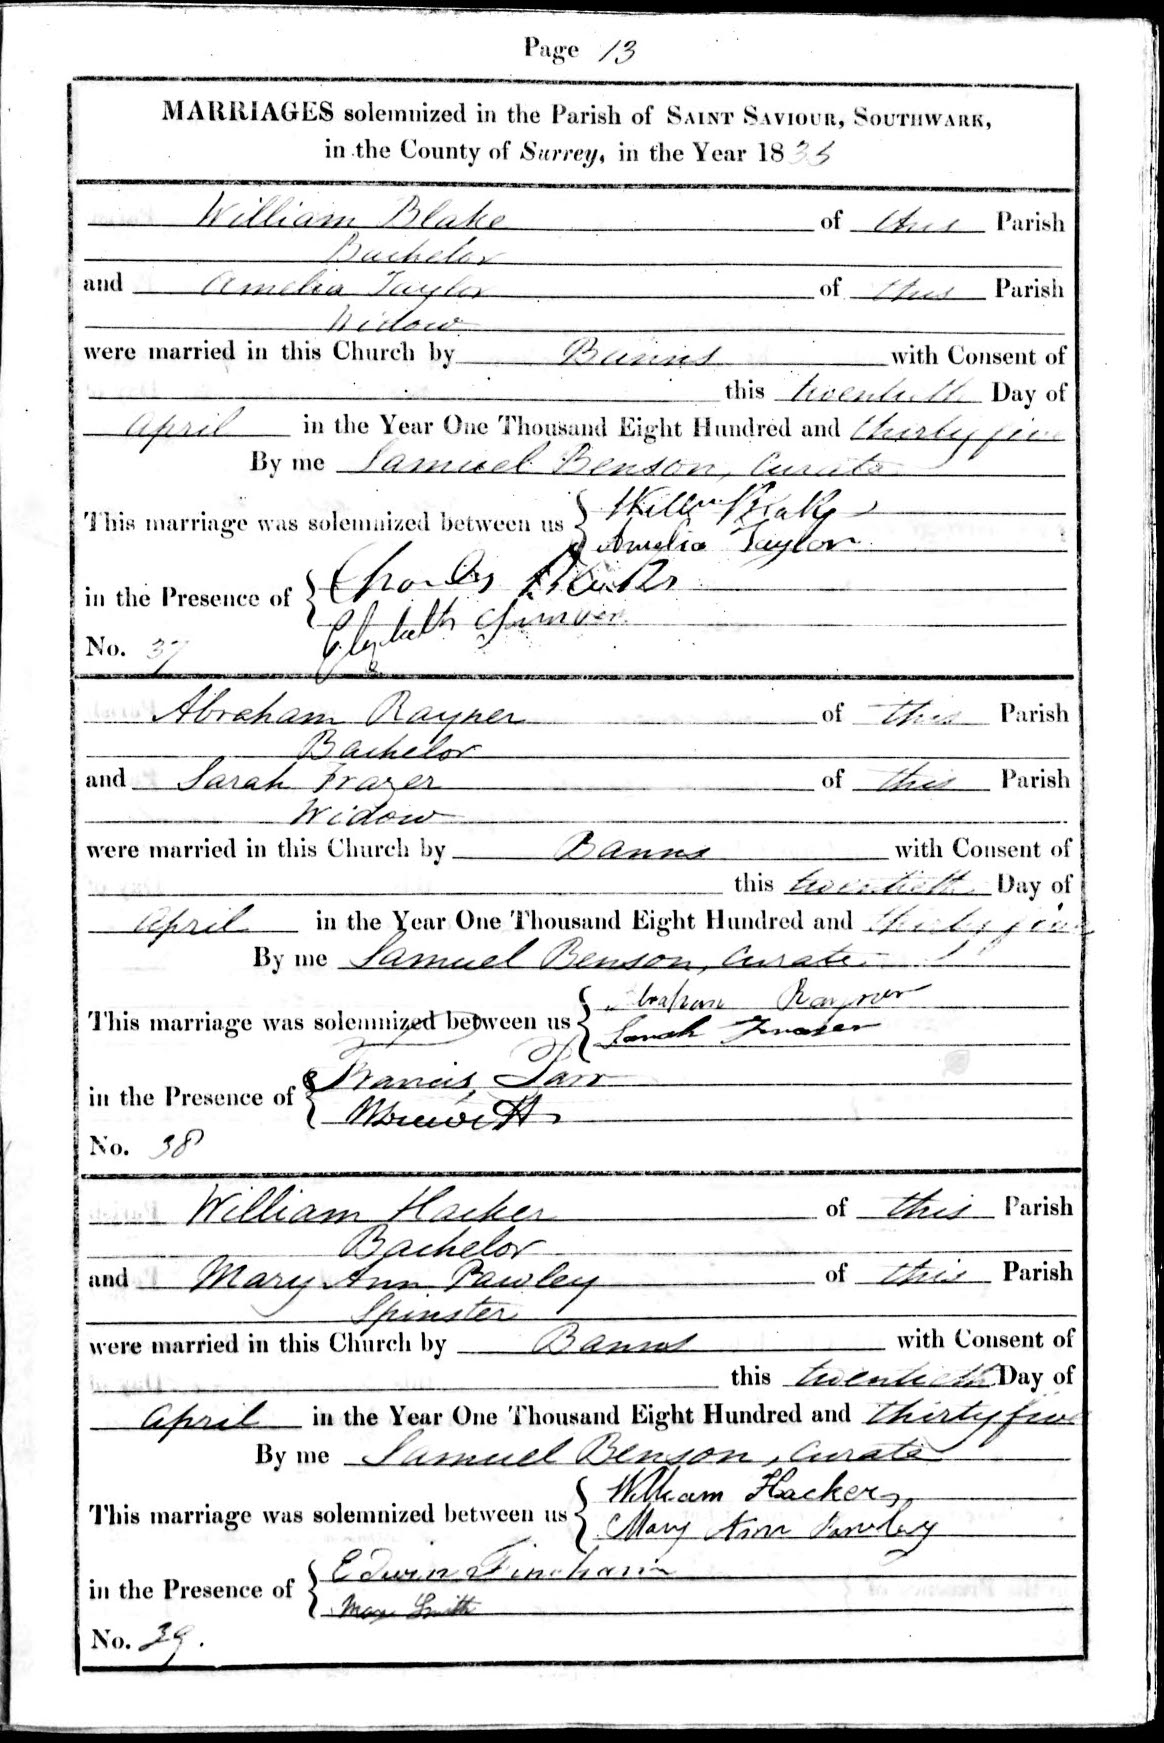 Page 13
MARRIAGES solemnized in the Parish of SAINT SAVIOUR, SOUTHWARK,
in the County of Surrey, in the Year 1835
William Blake of this Parish
Bachelor
and Amelia Taylor of this Parish
Widow
were married in this Church by Banns with Consent of
this twentieth Day of
April in the Year One Thousand Eight Hundred and thirty five
By me Samuel Benson, Curate
This marriage was solemnized between us { Willm Blake
Amelia Taylor
in the Presence of { Charles
Elizabeth
No. 37
Abraham Rayner of this Parish
Bachelor
and Sarah Frazer of this Parish
Widow
were married in this Church by Banns with Consent of
this twentieth Day of
April in the Year One Thousand Eight Hundred and thirty five
By me Samuel Benson, Curate
This marriage was solemnized between us { Abraham Rayner
Sarah Fraser
in the Presence of { Francis
No. 38
William Hacker of this Parish
Bachelor
and Mary Ann Pawley of this Parish
Spinster
were married in this Church by Banns with Consent of
this twentieth Day of
April in the Year One Thousand Eight Hundred and thirty five
By me Samuel Benson, Curate
This marriage was solemnized between us { William Hacker
Mary Ann Pawley
in the Presence of { Edwin Fincham
Mary Smith
No. 39.